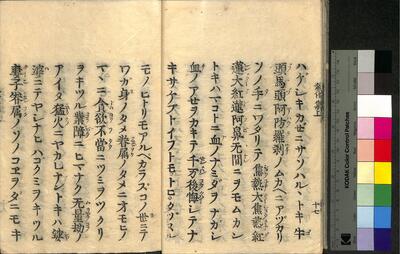 ハケシキカセニサソハル、トキ牛
頭馬頭阿防羅刹ムカヘニアツカリ
ソノ手ニワタリテ焦熱大焦熱紅
蓮大紅蓮阿鼻無間ニヲモムカン
トキハマコトニ血ノナミダヲナガシ
血ノアセヲカキテ千万後悔シテナ
キサケフトイフトモトロクヘク
モノヒトリモアルヘカラスコノ世ニテ
ワガ身ノタメ眷属ノタメニオモヒノ
マヽニ貪欲不當ニツミヲツクリ
ヲキツル業障ニヒマナク無量劫ノ
アイタ猛火ニヤカレナントキハ
ニテヤシナヒハコクミヲキツル
妻子眷属ノソノコヱヲタニモキ
十七
KODAK Color Control Patches